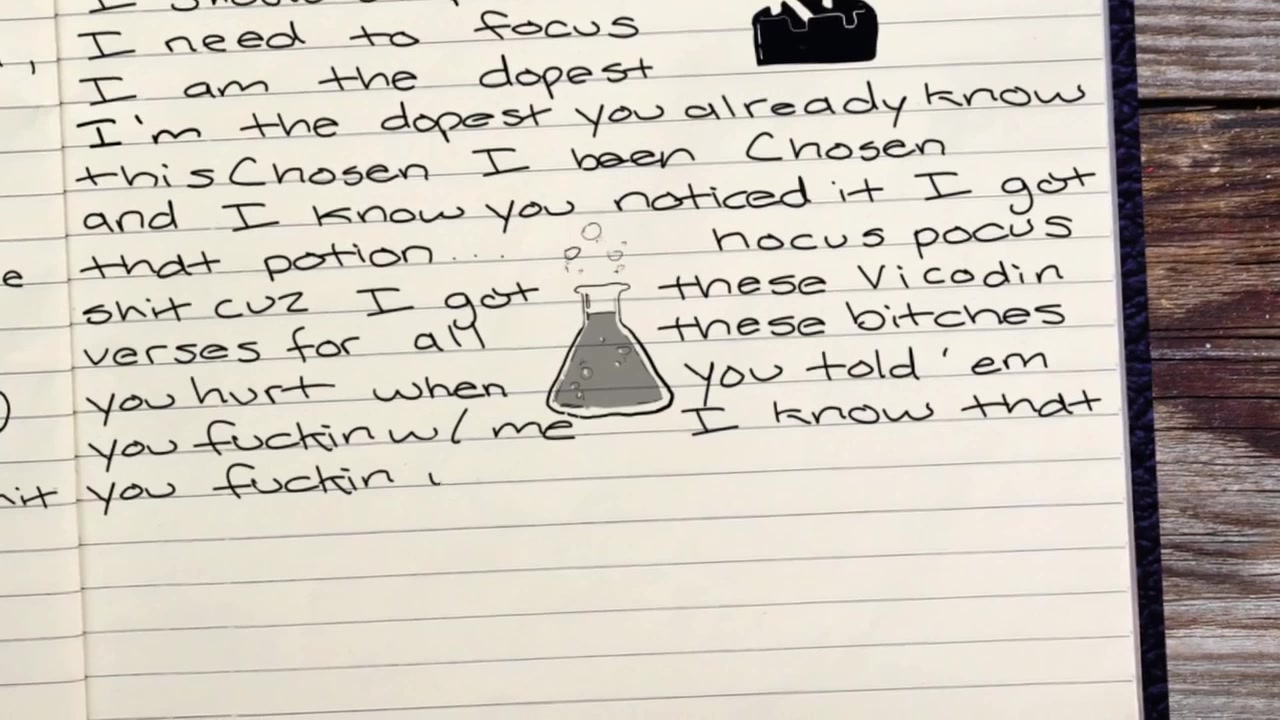 I need to focus
I am the dopest
I'm the dopest you already know
this Chosen I been Chosen
and I know you noticed it I got
that potion.... hocus pocus
shit cuz I got these Vicodin
verses for all these bitches
you hurt when you told 'em
you fuckin w/ me I know that
you fuckin
e